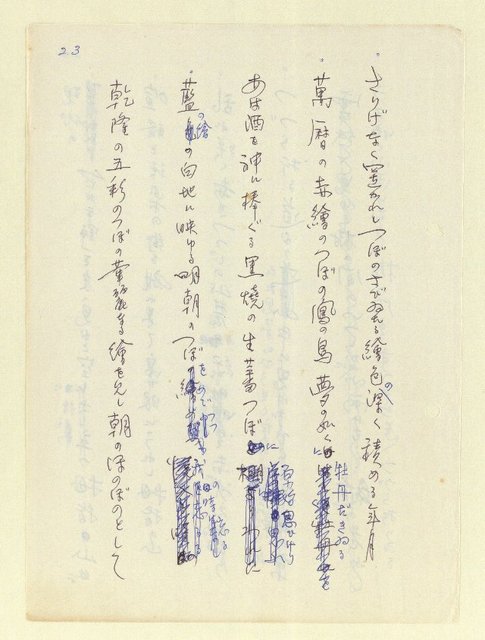 23
・さりげなく置かれしつぼのさびゐる繪色の深く積める年月
・萬暦の赤繪のつぼの鳳の鳥夢の如くに牡丹だきゐる
あは酒を神に捧ぐる黒焼の生蕃つぼに原始思かけり
・藍の繪の白地に映ゆる明朝のつぼをめでつつ
乾隆の五彩のつぼの華麗な繪を見し朝のほのぼのとして